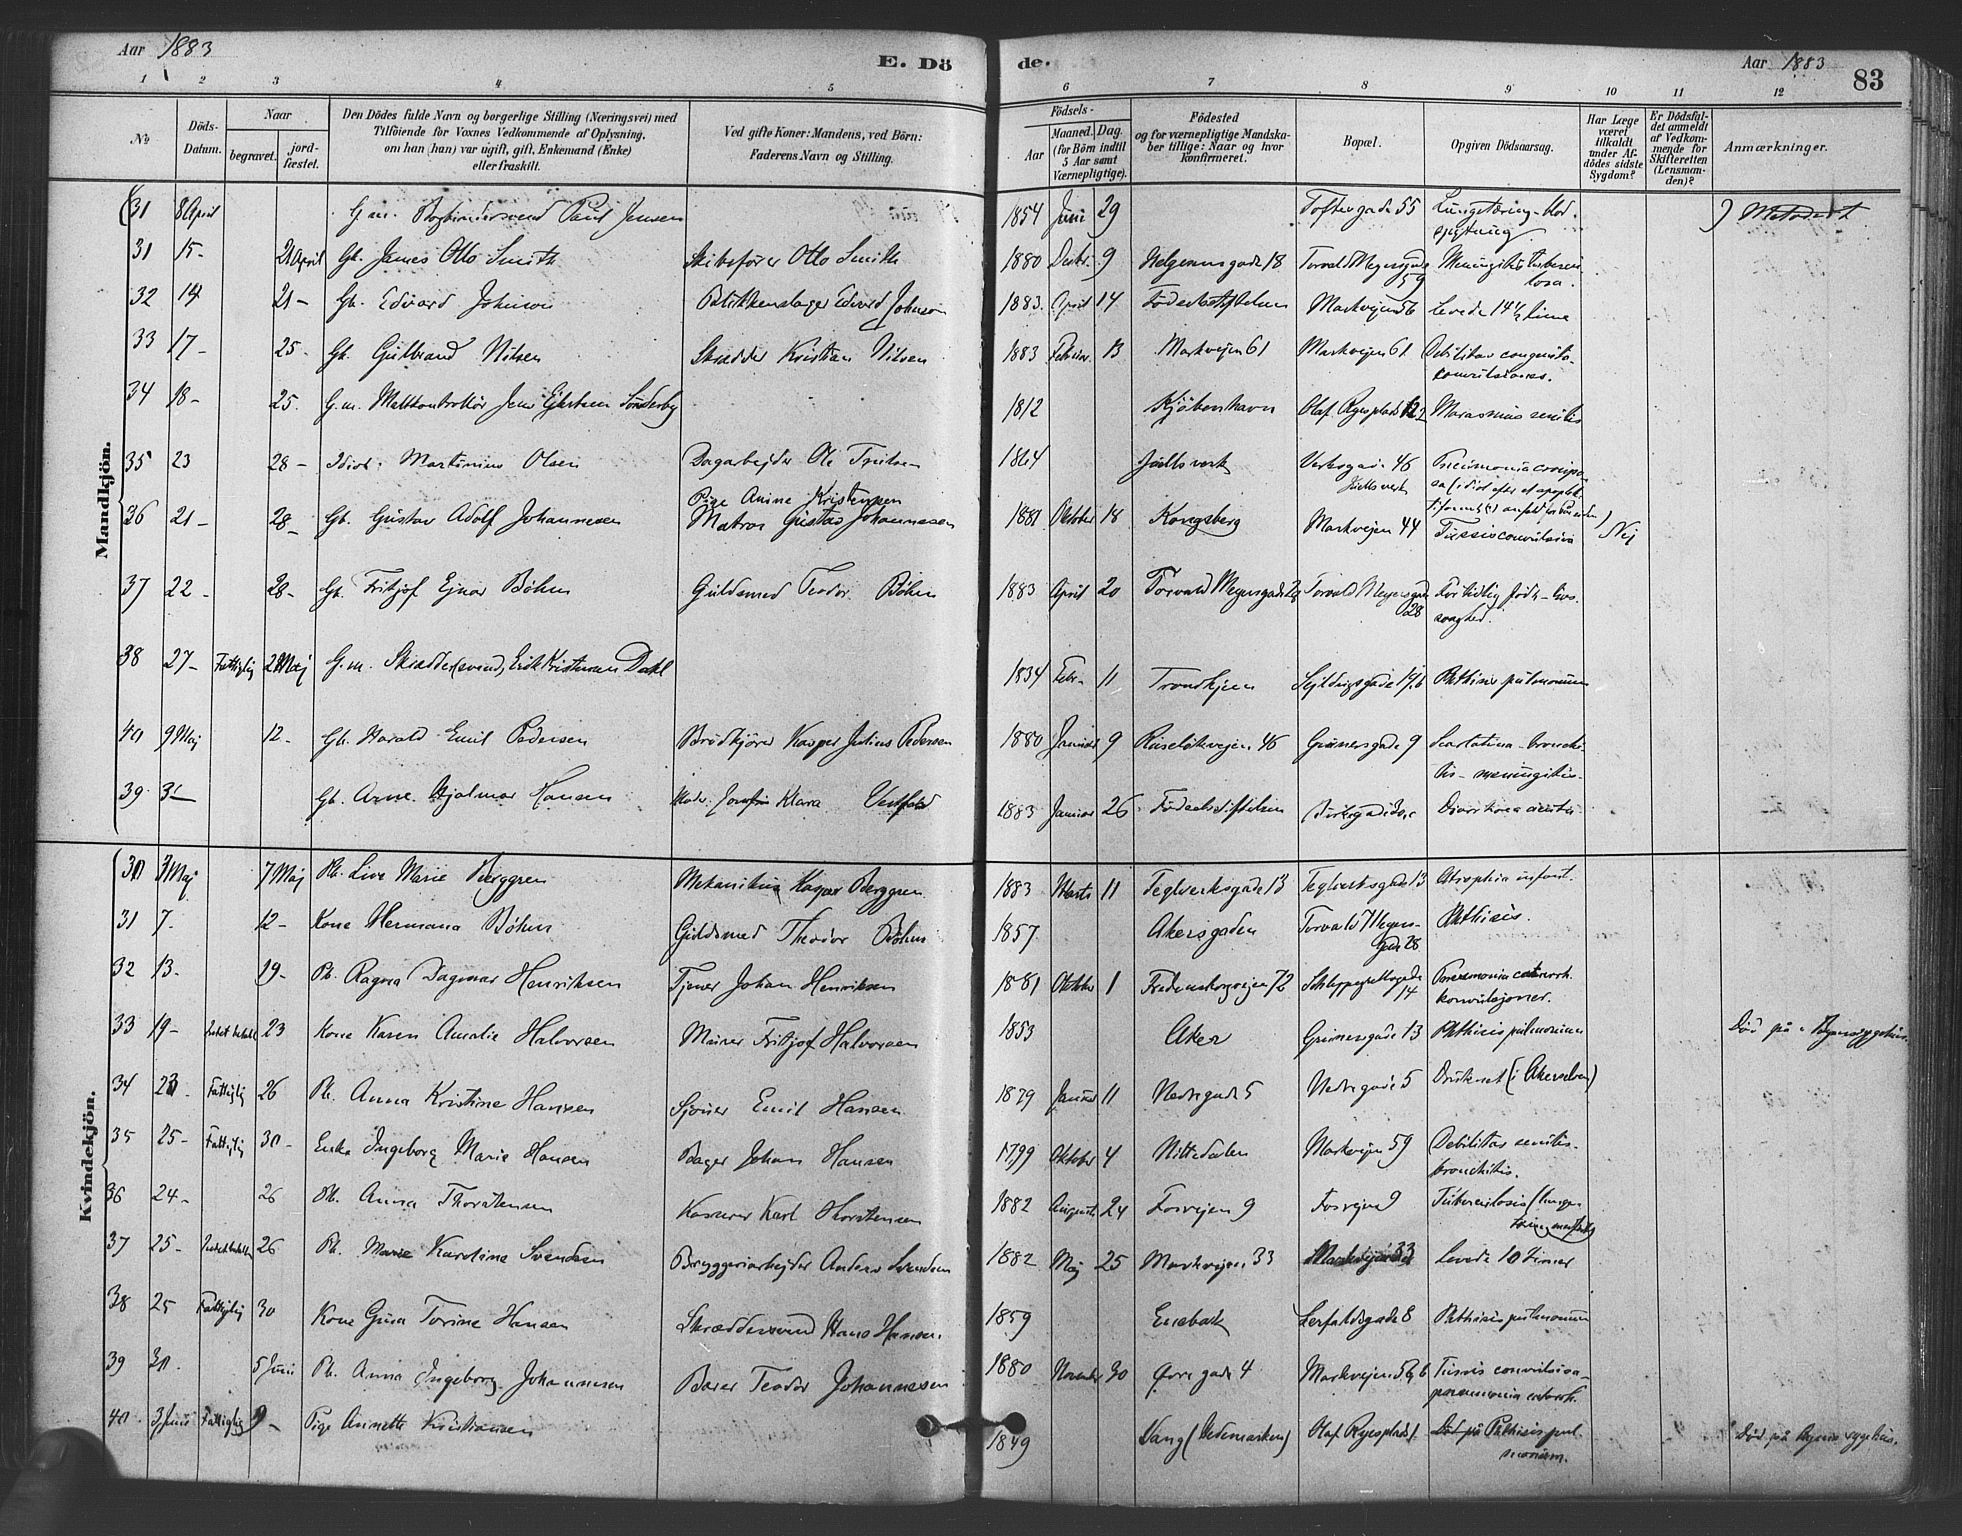 Aar 1883
E. Dö
de.
Aar 1883
83
1 2 3 4 5 6 7 8 9 10 11 12
No
Döds-Datum.
Naar
begravet.
jord-fæstet.
Den Dödes fulde Navn og borgerlige Stilling (Næringsvei) med
Tilföiende for Voxnes Vedkommende af Oplysning,
om han (hun) var ugift, gift, Enkemand (Enke)
eller fraskilt.
Ved gifte Koner: Mandens, ved Börn:
Faderens Navn og Stilling.
Födsels-
Aar
Maaned. Dag.
(for Börn indtil
5 Aar samt
Værnepligtige).
Födested
og for værnepligtige Mandska-
ber tillige: Naar og hvor
konfirmeret.
Bopæl.
Opgiven Dödsaarsag.
Har Læge
været
tilkaldt
under Af-
dödes sidste
Sygdom?
Er Dödsfal-
det anmeldt
af Vedkom-
mende for
Skifteretten
(Lensman-
den)?
Anmærkninger.
Mandkjön.
31 8 April G.m. Bogbindersvend Paul Jensen 1854 Juni 29 Toftesgade 55 Lungetæring - Blod-
spytning. Metodist
31 15- 21 April Gb. James Otto Smith Skibsfører Otto Smith 1880 Decbr. 9 Helgesensgade 18 Torvald Meyersgade
59 Meningitis tubercu-
losa.
32 14 21- Gb. Edvard Johnson Edvard Johnson 1883. April 14 Fødselsstiftelsen Markvejen 56 Levede 14½ Time
33 17- 25- Gb. Gulbrand Nilsen Skrædder Kristian Nilsen 1883 Februar 13 Markvejen 61 Markvejen 61 Debilitas congenita-
convulsiones.
34 18- 25. G.m. Sønderby 1812 Kjøbenhavn Olaf Ryesplads Marasmus senilis
35 23 28- Idiot. Martinius Olsen Dagarbejder Ole
Pige Anine Kristensen 1864 Verksgade 46 Pneumonia croupo-
sa
36 21- 28- Gb. Gustav Adolf Johannesen Matros Gustav Johannessen 1881 Oktober 18 Kongsberg Markvejen 44 Tussis convulsiva Nej
37 22- 28- Gb. Fritjof Ejnar Bøhm Guldsmed Teodor Bøhm 1883 April 20 Torvald Meyersgade 28 Torvald Meyersgade
28 For tidlig født - Livs-
svaghed.
38 27- Fattiglig 2 Maj G.m. Skrædder(svend) Erik Kristensen Dahl 1834 Febr. 11 Trondhjem Phthisis pulmonum
40 9 Maj 12- Gb. Harald Emil Pedersen Brødkjører Kasper Julius Pedersen 1880 Januar 9 Ruseløkvejen 46 Grünersgade 9 Scarlatina - bronchi-
tis - meningitis.
39 3- Gb. Arne Hjalmar Hansen Moder: Josefine Klara 1883 Januar 26 Fødselsstiftelsen Diarrhoea acuta
Kvindekjön.
30 3 Maj 7 Maj Pb. Live Marie Berggren Mekanikus Kasper Berggren 1883 Marts 11 Teglverksgade 13 Teglverksgade 13 Atrophia infant.
31 7- 12- Kone Hermana Bøhm Guldsmed Theodor Bøhm 1857 Akersgaden Torvald Meyers-
gade 28 Phthisis.
32 13- 19- Pb. Ragna Dagmar Henriksen Tjener Johan Henriksen 1881 Oktober 1 Fredensborgvejen 72 Schleppegrellsgade
14 Pneumonia catarrh.
konvulsjoner.
33 19- 23 Kone Karen Amalie Halvorsen Murer Fritjof Halvorsen 1853 Aker Grünersgade 13 Phthisis pulmonum Død på Byens sygehus.
34 23- Fattiglig 26 Pb. Anna Kristine Hansen Emil Hansen 1879 Januar 11 Nedregade 5 Nedregade 5 Druknet (i Akerselven)
35 25- Fattiglig 30- Enke Ingeborg Marie Hansen Bager Johan Hansen 1799 Oktober 4 Nittedalen Markvejen 59 Debilitas senilis-
bronchitis.
36 24- 26 Pb. Anna Thorstensen Karl Thorstensen 1882 August 24 Fosvejen 9 Fosvejen 9 Tuberculosis
37 25- 26 Pb. Marie Karoline Svendsen Bryggeriarbejder Anders Svendsen 1882 Maj 25 Markvejen 33 Markvejen 33 Levede 10 Timer
38 25 Fattiglig 30 Kone Gina Torine Hansen Skræddersvend Hans Hansen. 1859 Enebak Lerfaldsgade 8 Phthisis pulmonum
39 30. 5 Juni Pb. Anna Ingeborg Johannesen Teodor Johannessen 1880 November 30 Øvregade 4 Markvejen 56 Tussis convulsiva-
pneumonia catarrh.
40 3 Juni Fattiglig 9- Pige Annette Kristiansen 1849 Vang (Hedemarken) Olaf Ryesplads 1. Død på Phthisis pul-
monum. Død på Byens sygehus.